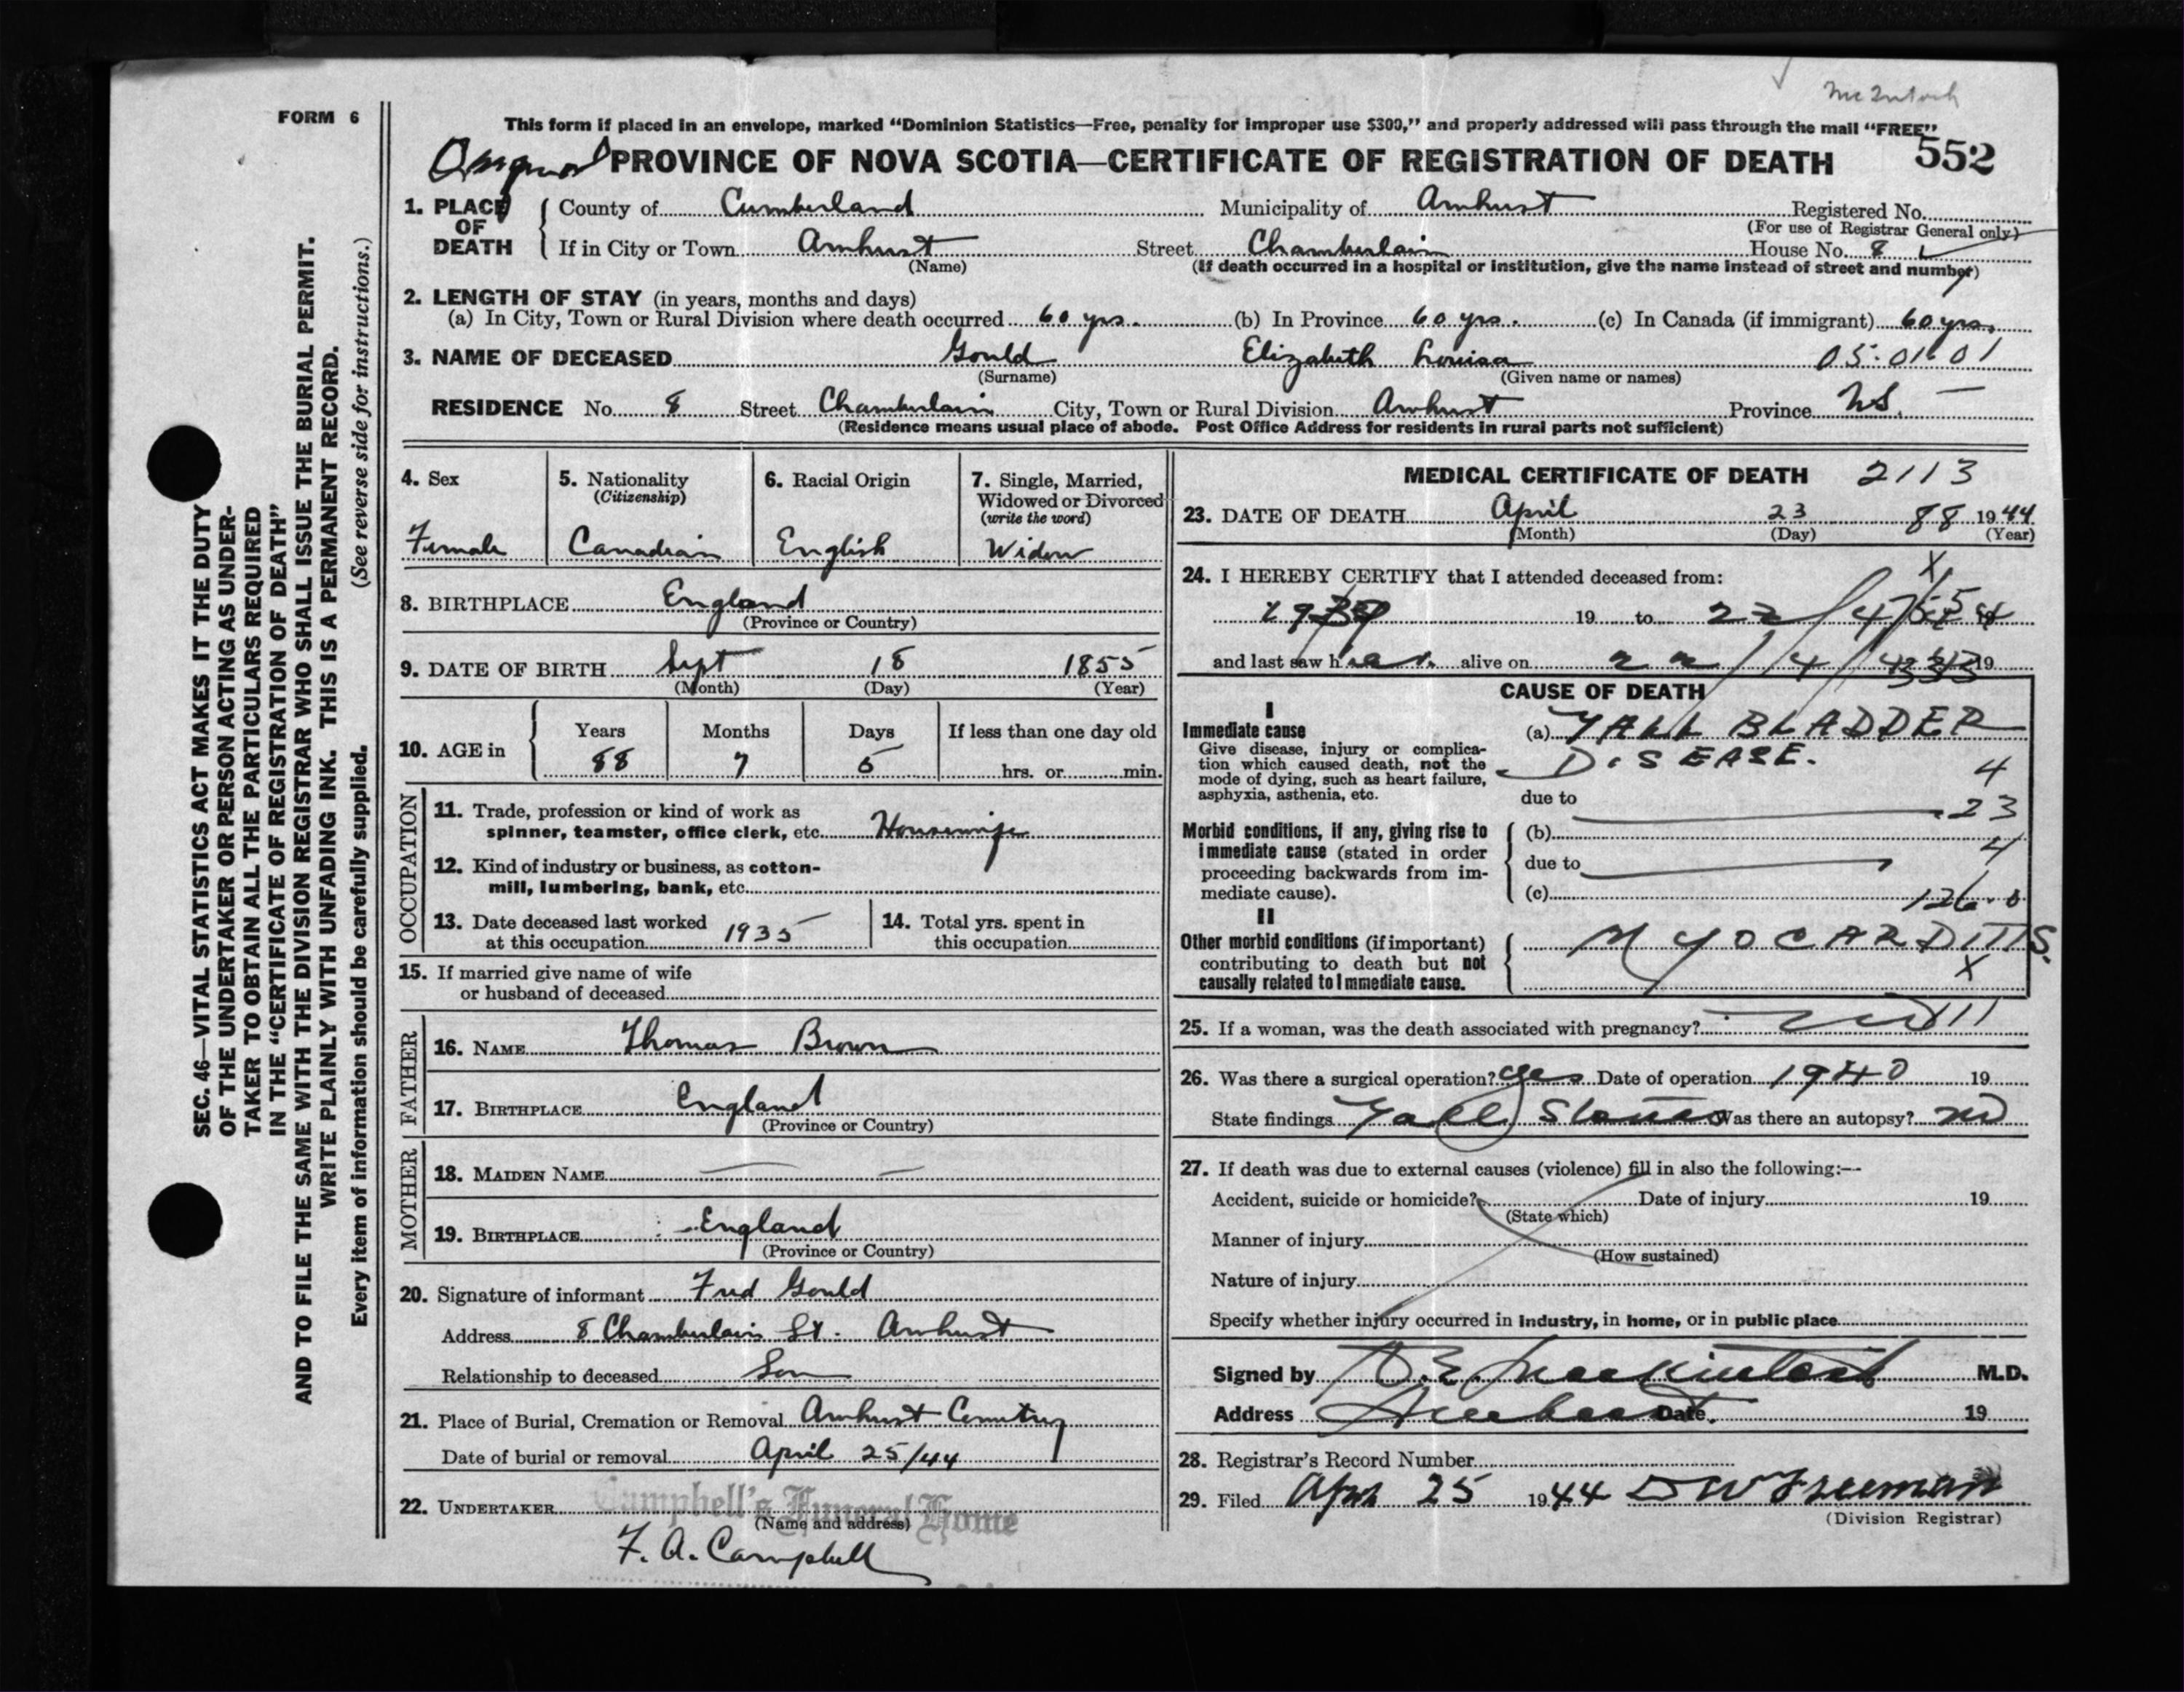 McIntosh
FORM 6
This form if placed in an envelope, marked “Dominion Statistics—Free, penalty for improper use $300,” and properly addressed will pass through the mail “FREE”
PROVINCE OF NOVA SCOTIA—CERTIFICATE OF REGISTRATION OF DEATH 552
1. PLACE OF DEATH
County of Cumberland Municipality of Amherst Registered No.
(For use of Registrar General only)
If in City or Town Amherst Street Chamberlain House No. 8
(Name) (If death occurred in a hospital or institution, give the name instead of street and number)
2. LENGTH OF STAY (in years, months and days)
(a) In City, Town or Rural Division where death occurred 60 yrs. (b) In Province 60 yrs. (c) In Canada (if immigrant) 60 yrs.
3. NAME OF DECEASED Gould Elizabeth Louisa 05.01.01
(Surname) (Given name or names)
RESIDENCE No. 8 Street Chamberlain City, Town or Rural Division Amherst Province N.S.
(Residence means usual place of abode. Post Office Address for residents in rural parts not sufficient)
4. Sex
Female
5. Nationality
(Citizenship)
Canadian
6. Racial Origin
English
7. Single, Married,
Widowed or Divorced
(write the word)
Widow
8. BIRTHPLACE England
(Province or Country)
9. DATE OF BIRTH Sept 18 1855
(Month) (Day) (Year)
10. AGE in
Years Months Days If less than one day old
88 7 5 hrs. or min.
OCCUPATION
11. Trade, profession or kind of work as
spinner, teamster, office clerk, etc. Housewife
12. Kind of industry or business, as cotton-
mill, lumbering, bank, etc.
13. Date deceased last worked
at this occupation 1935
14. Total yrs. spent in
this occupation
15. If married give name of wife
or husband of deceased
FATHER
16. NAME Thomas Brown
17. BIRTHPLACE England
(Province or Country)
MOTHER
18. MAIDEN NAME — —
19. BIRTHPLACE England
(Province or Country)
20. Signature of informant Fred Gould
Address 8 Chamberlain St. Amherst
Relationship to deceased Son
21. Place of Burial, Cremation or Removal Amherst Cemetery
Date of burial or removal April 25/44
22. UNDERTAKER Campbell's Funeral Home
(Name and address)
F. A. Campbell
MEDICAL CERTIFICATE OF DEATH 2113
23. DATE OF DEATH April 23 88 1944
(Month) (Day) (Year)
24. I HEREBY CERTIFY that I attended deceased from:
19 to 22/4/
and last saw her alive on 22/4/ 19
CAUSE OF DEATH
I
Immediate cause
Give disease, injury or complica-
tion which caused death, not the
mode of dying, such as heart failure,
asphyxia, asthenia, etc.
(a) GALL BLADDER
DISEASE.
4
due to
23
Morbid conditions, if any, giving rise to
immediate cause (stated in order
proceeding backwards from im-
mediate cause).
(b)
4
due to
(c) 126.0
II
Other morbid conditions (if important)
contributing to death but not
causally related to immediate cause.
MYOCARDITIS.
X
25. If a woman, was the death associated with pregnancy? no
26. Was there a surgical operation? yes Date of operation 1940 19
State findings Gall Stones Was there an autopsy? no
27. If death was due to external causes (violence) fill in also the following:—
Accident, suicide or homicide? Date of injury 19
(State which)
Manner of injury
(How sustained)
Nature of injury
Specify whether injury occurred in industry, in home, or in public place
Signed by Mackintosh M.D.
Address Amherst Date 19
28. Registrar's Record Number
29. Filed April 25 1944 D W Freeman
(Division Registrar)
SEC. 46—VITAL STATISTICS ACT MAKES IT THE DUTY
OF THE UNDERTAKER OR PERSON ACTING AS UNDER-
TAKER TO OBTAIN ALL THE PARTICULARS REQUIRED
IN THE “CERTIFICATE OF REGISTRATION OF DEATH”
AND TO FILE THE SAME WITH THE DIVISION REGISTRAR WHO SHALL ISSUE THE BURIAL PERMIT.
WRITE PLAINLY WITH UNFADING INK. THIS IS A PERMANENT RECORD.
Every item of information should be carefully supplied. (See reverse side for instructions.)